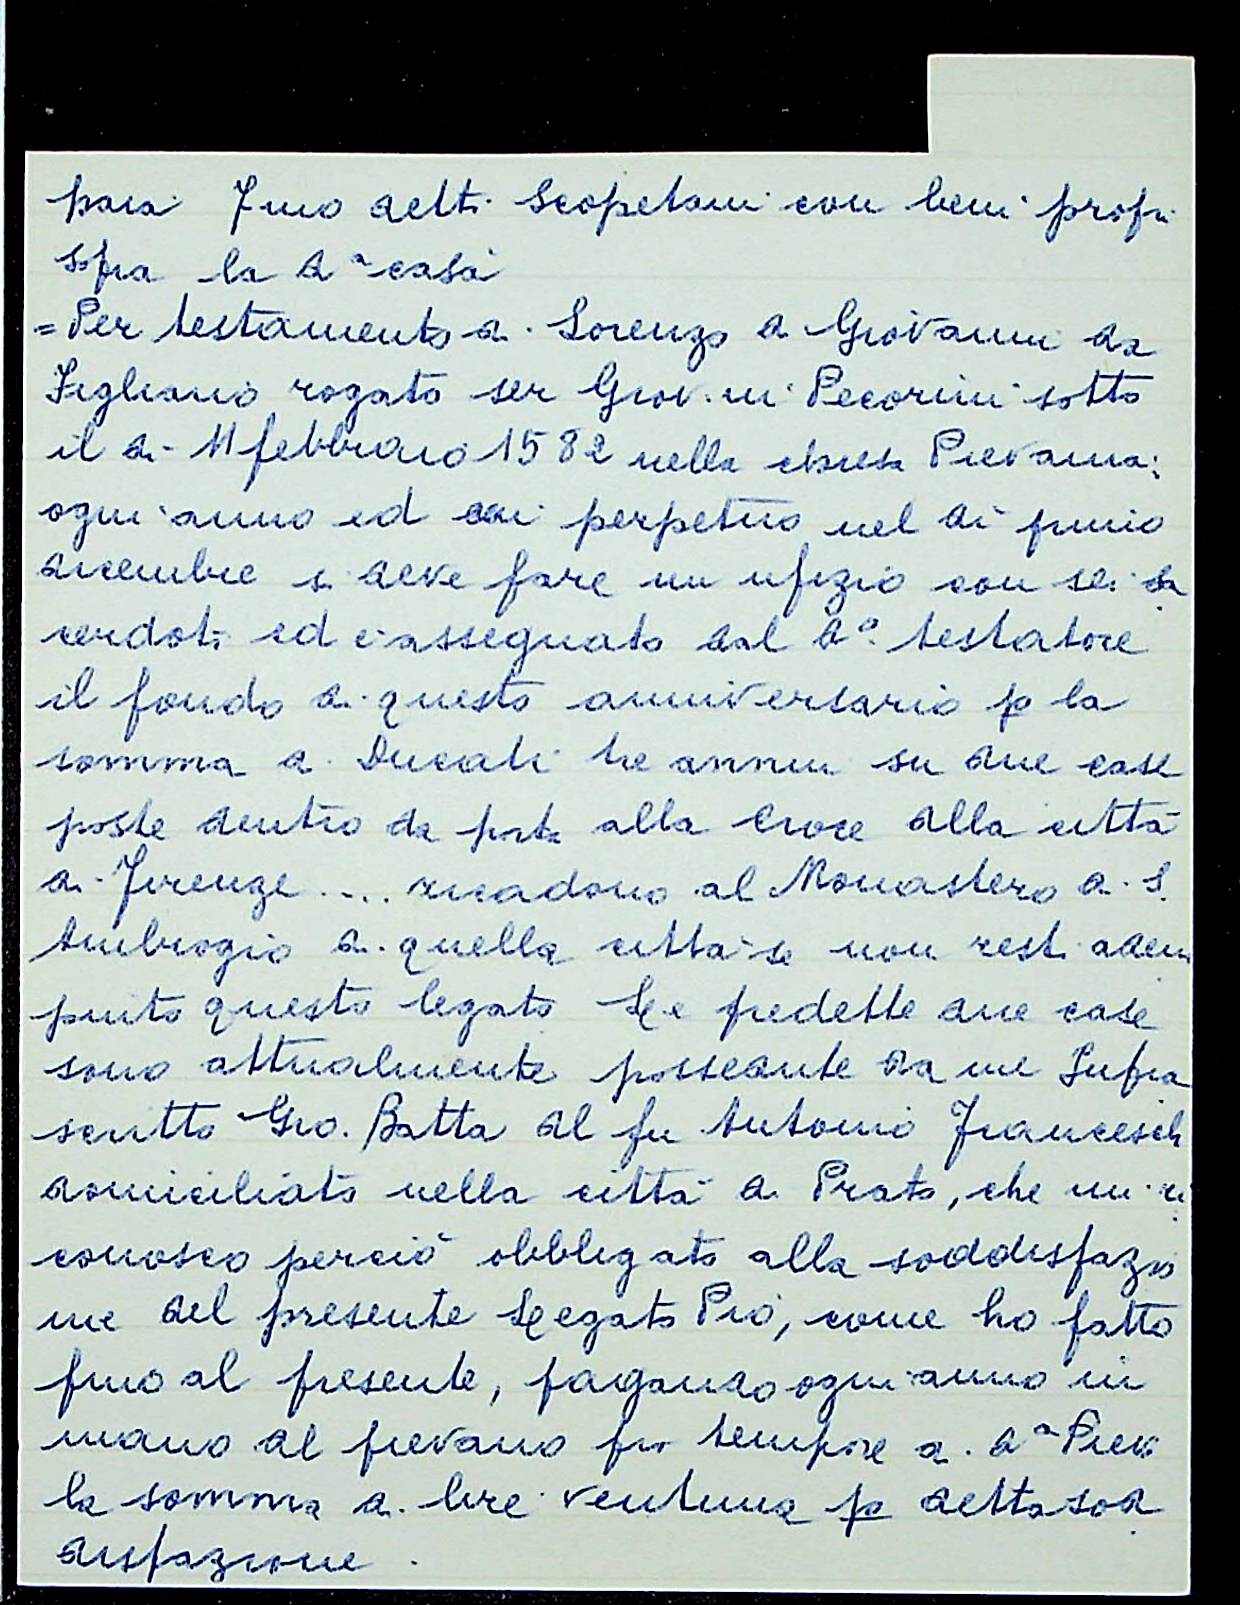 para fino detti Scopetani con beni propri
sopra la dᵃ casa
= Per testamento di Lorenzo di Giovanni da
Figliano rogato ser Giov.ni Pecorini sotto
il di 11 febbraio 1582 nella chiesa Pievana:
ogni anno ed in perpetuo nel dì primo
dicembre si deve fare un ufizio con sei sa
cerdoti ed è assegnato dal dº. testatore
il fondo di questo anniversario p la
somma di Ducati tre annui su due case
poste dentro da porta alla Croce alla città
di Firenze .... ricadono al Monastero di S.
Ambrogio di quella città se non resti adem
piuto questo legato Le predette due case
sono attualmente possedute da me Infra
scritto Gio. Batta del fu Antonio Franceschi
domiciliato nella città di Prato, che mi ri
conosco perciò obbligato alla soddisfazio
ne del presente Legato Pio, come ho fatto
fino al presente, pagando ogni anno in
mano al pievano pro tempore di dᵃ Pieve
la somma di lire ventuna p detta sod
disfazione.